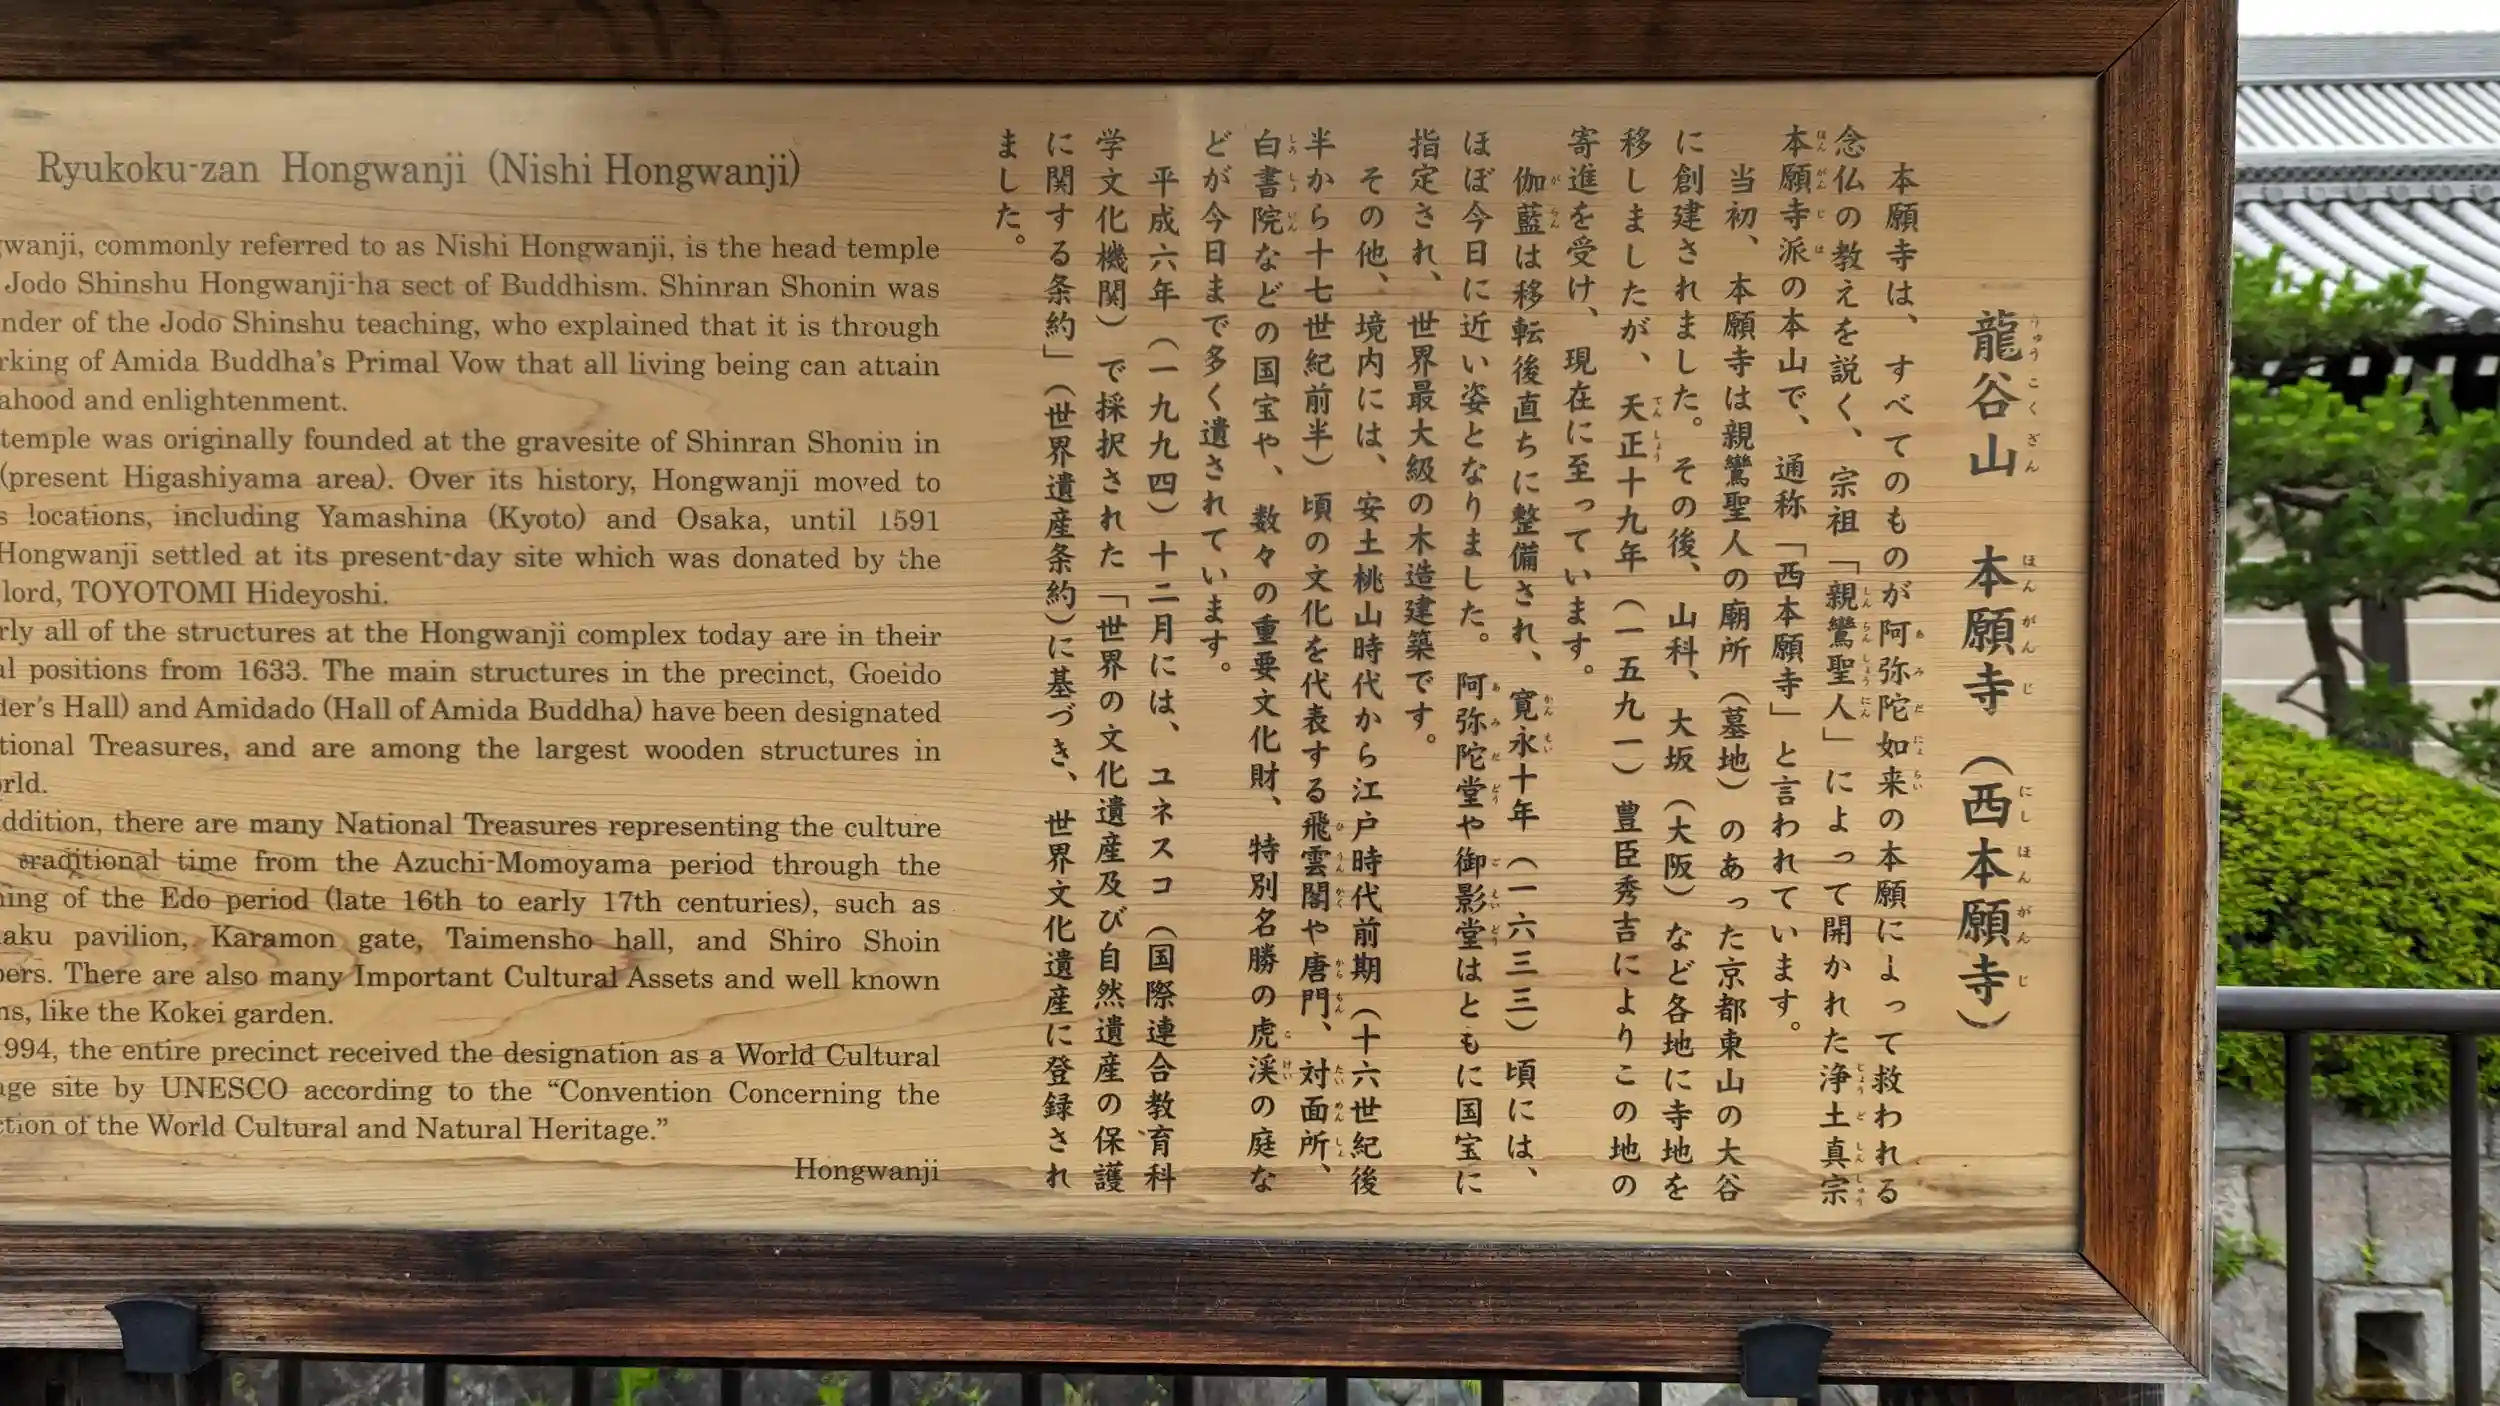 Ryukoku-zan Hongwanji (Nishi Hongwanji)
gwanji, commonly referred to as Nishi Hongwanji, is the head temple
Jodo Shinshu Hongwanji-ha sect of Buddhism. Shinran Shonin was
nder of the Jodo Shinshu teaching, who explained that it is through
rking of Amida Buddha's Primal Vow that all living being can attain
ahood and enlightenment.
temple was originally founded at the gravesite of Shinran Shonin in
(present Higashiyama area). Over its history, Hongwanji moved to
s locations, including Yamashina (Kyoto) and Osaka, until 1591
Hongwanji settled at its present-day site which was donated by the
lord, TOYOTOMI Hideyoshi.
rly all of the structures at the Hongwanji complex today are in their
al positions from 1633. The main structures in the precinct, Goeido
der's Hall) and Amidado (Hall of Amida Buddha) have been designated
tional Treasures, and are among the largest wooden structures in
orld.
ddition, there are many National Treasures representing the culture
traditional time from the Azuchi-Momoyama period through the
ning of the Edo period (late 16th to early 17th centuries), such as
aku pavilion, Karamon gate, Taimensho hall, and Shiro Shoin
bers. There are also many Important Cultural Assets and well known
ns, like the Kokei garden.
1994, the entire precinct received the designation as a World Cultural
age site by UNESCO according to the “Convention Concerning the
ction of the World Cultural and Natural Heritage.”
Hongwanji
龍谷山 本願寺（西本願寺）
本願寺は、すべてのものが阿弥陀如来の本願によって救われる
念仏の教えを説く、宗祖「親鸞聖人」によって開かれた浄土真宗
本願寺派の本山で、通称「西本願寺」と言われています。
当初、本願寺は親鸞聖人の廟所（墓地）のあった京都東山の大谷
に創建されました。その後、山科、大坂（大阪）など各地に寺地を
移しましたが、天正十九年（一五九一）豊臣秀吉によりこの地の
寄進を受け、現在に至っています。
伽藍は移転後直ちに整備され、寛永十年（一六三三）頃には、
ほぼ今日に近い姿となりました。阿弥陀堂や御影堂はともに国宝に
指定され、世界最大級の木造建築です。
その他、境内には、安土桃山時代から江戸時代前期（十六世紀後
半から十七世紀前半）頃の文化を代表する飛雲閣や唐門、対面所、
白書院などの国宝や、数々の重要文化財、特別名勝の虎渓の庭な
どが今日まで多く遺されています。
平成六年（一九九四）十二月には、ユネスコ（国際連合教育科
学文化機関）で採択された「世界の文化遺産及び自然遺産の保護
に関する条約」（世界遺産条約）に基づき、世界文化遺産に登録され
ました。